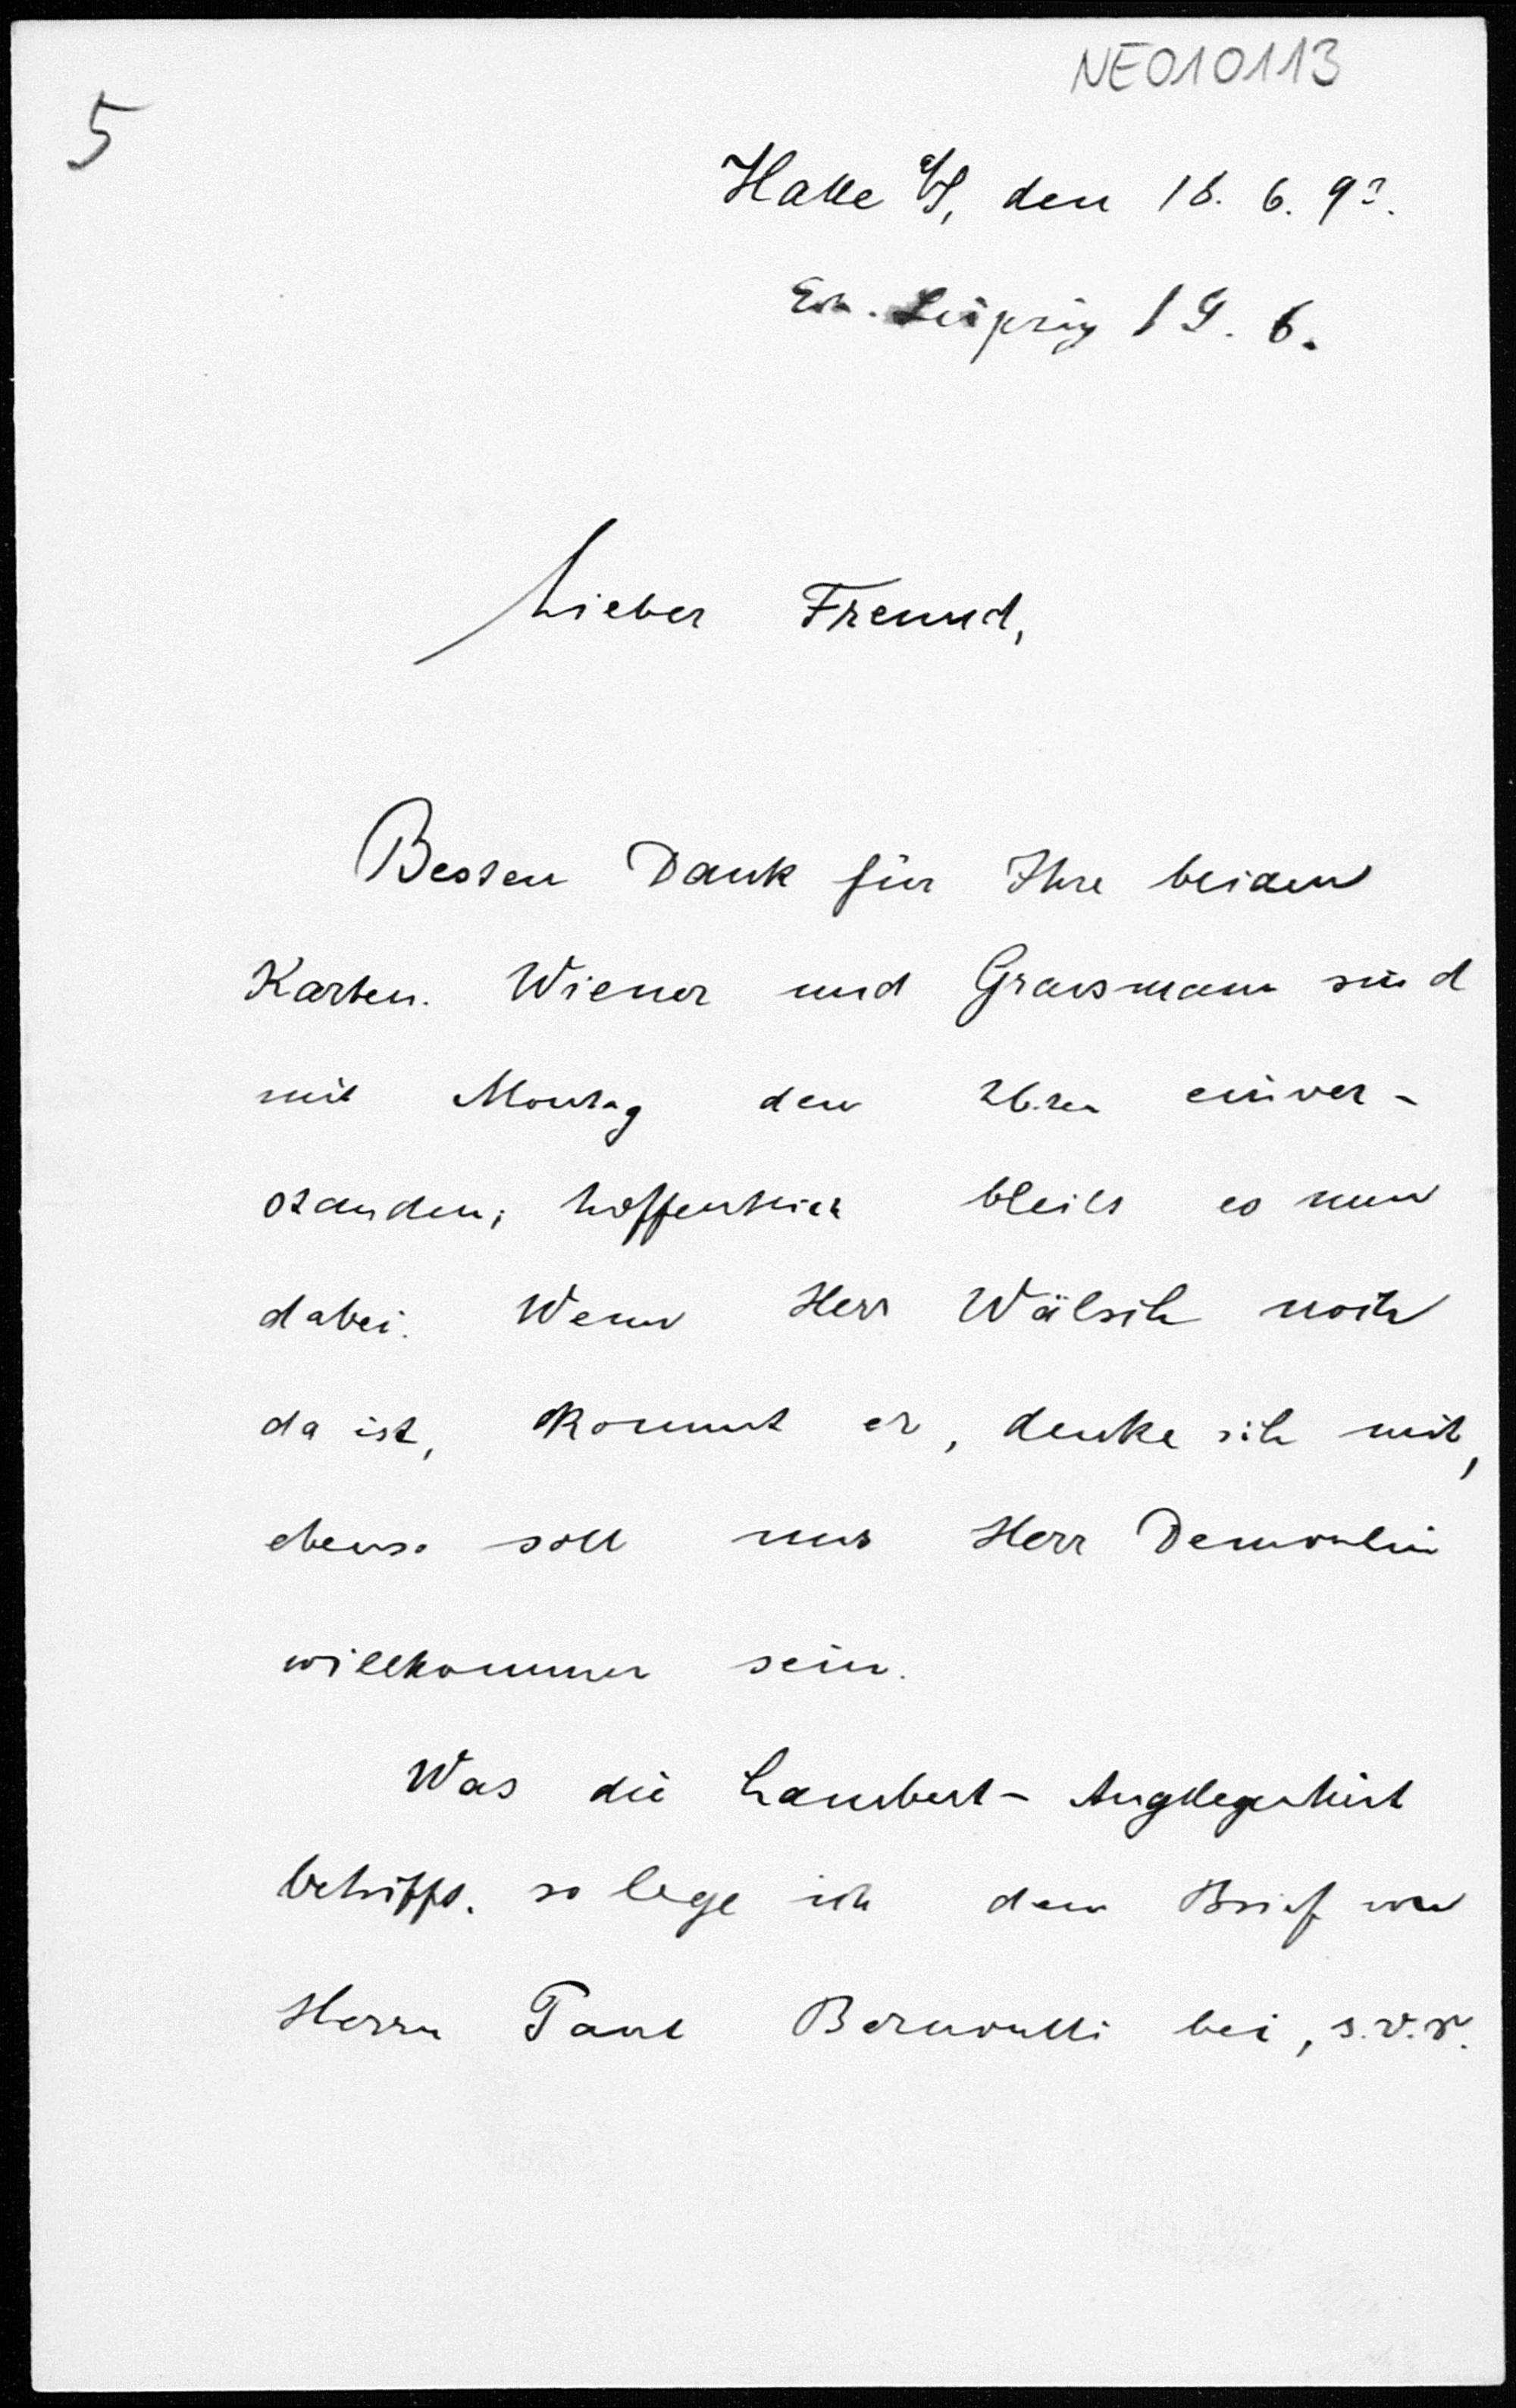 NE010113
5
Halle a/S, den 18. 6. 93.
Erh. Leipzig 19. 6.
Lieber Freund,
Besten Dank für Ihre beiden
Karten. Wiener und Grassmann sind
mit Montag den 26.ten einver-
standen; hoffentlich bleibt es nun
dabei. Wenn Herr Wälsch noch
da ist, kommt er, denke ich mit,
ebenso soll uns Herr Demoulin
willkommen sein.
Was die Lambert-Angelegenheit
betrifft, so lege ich den Brief von
Herrn Paul Bernoulli bei, s.v.r.